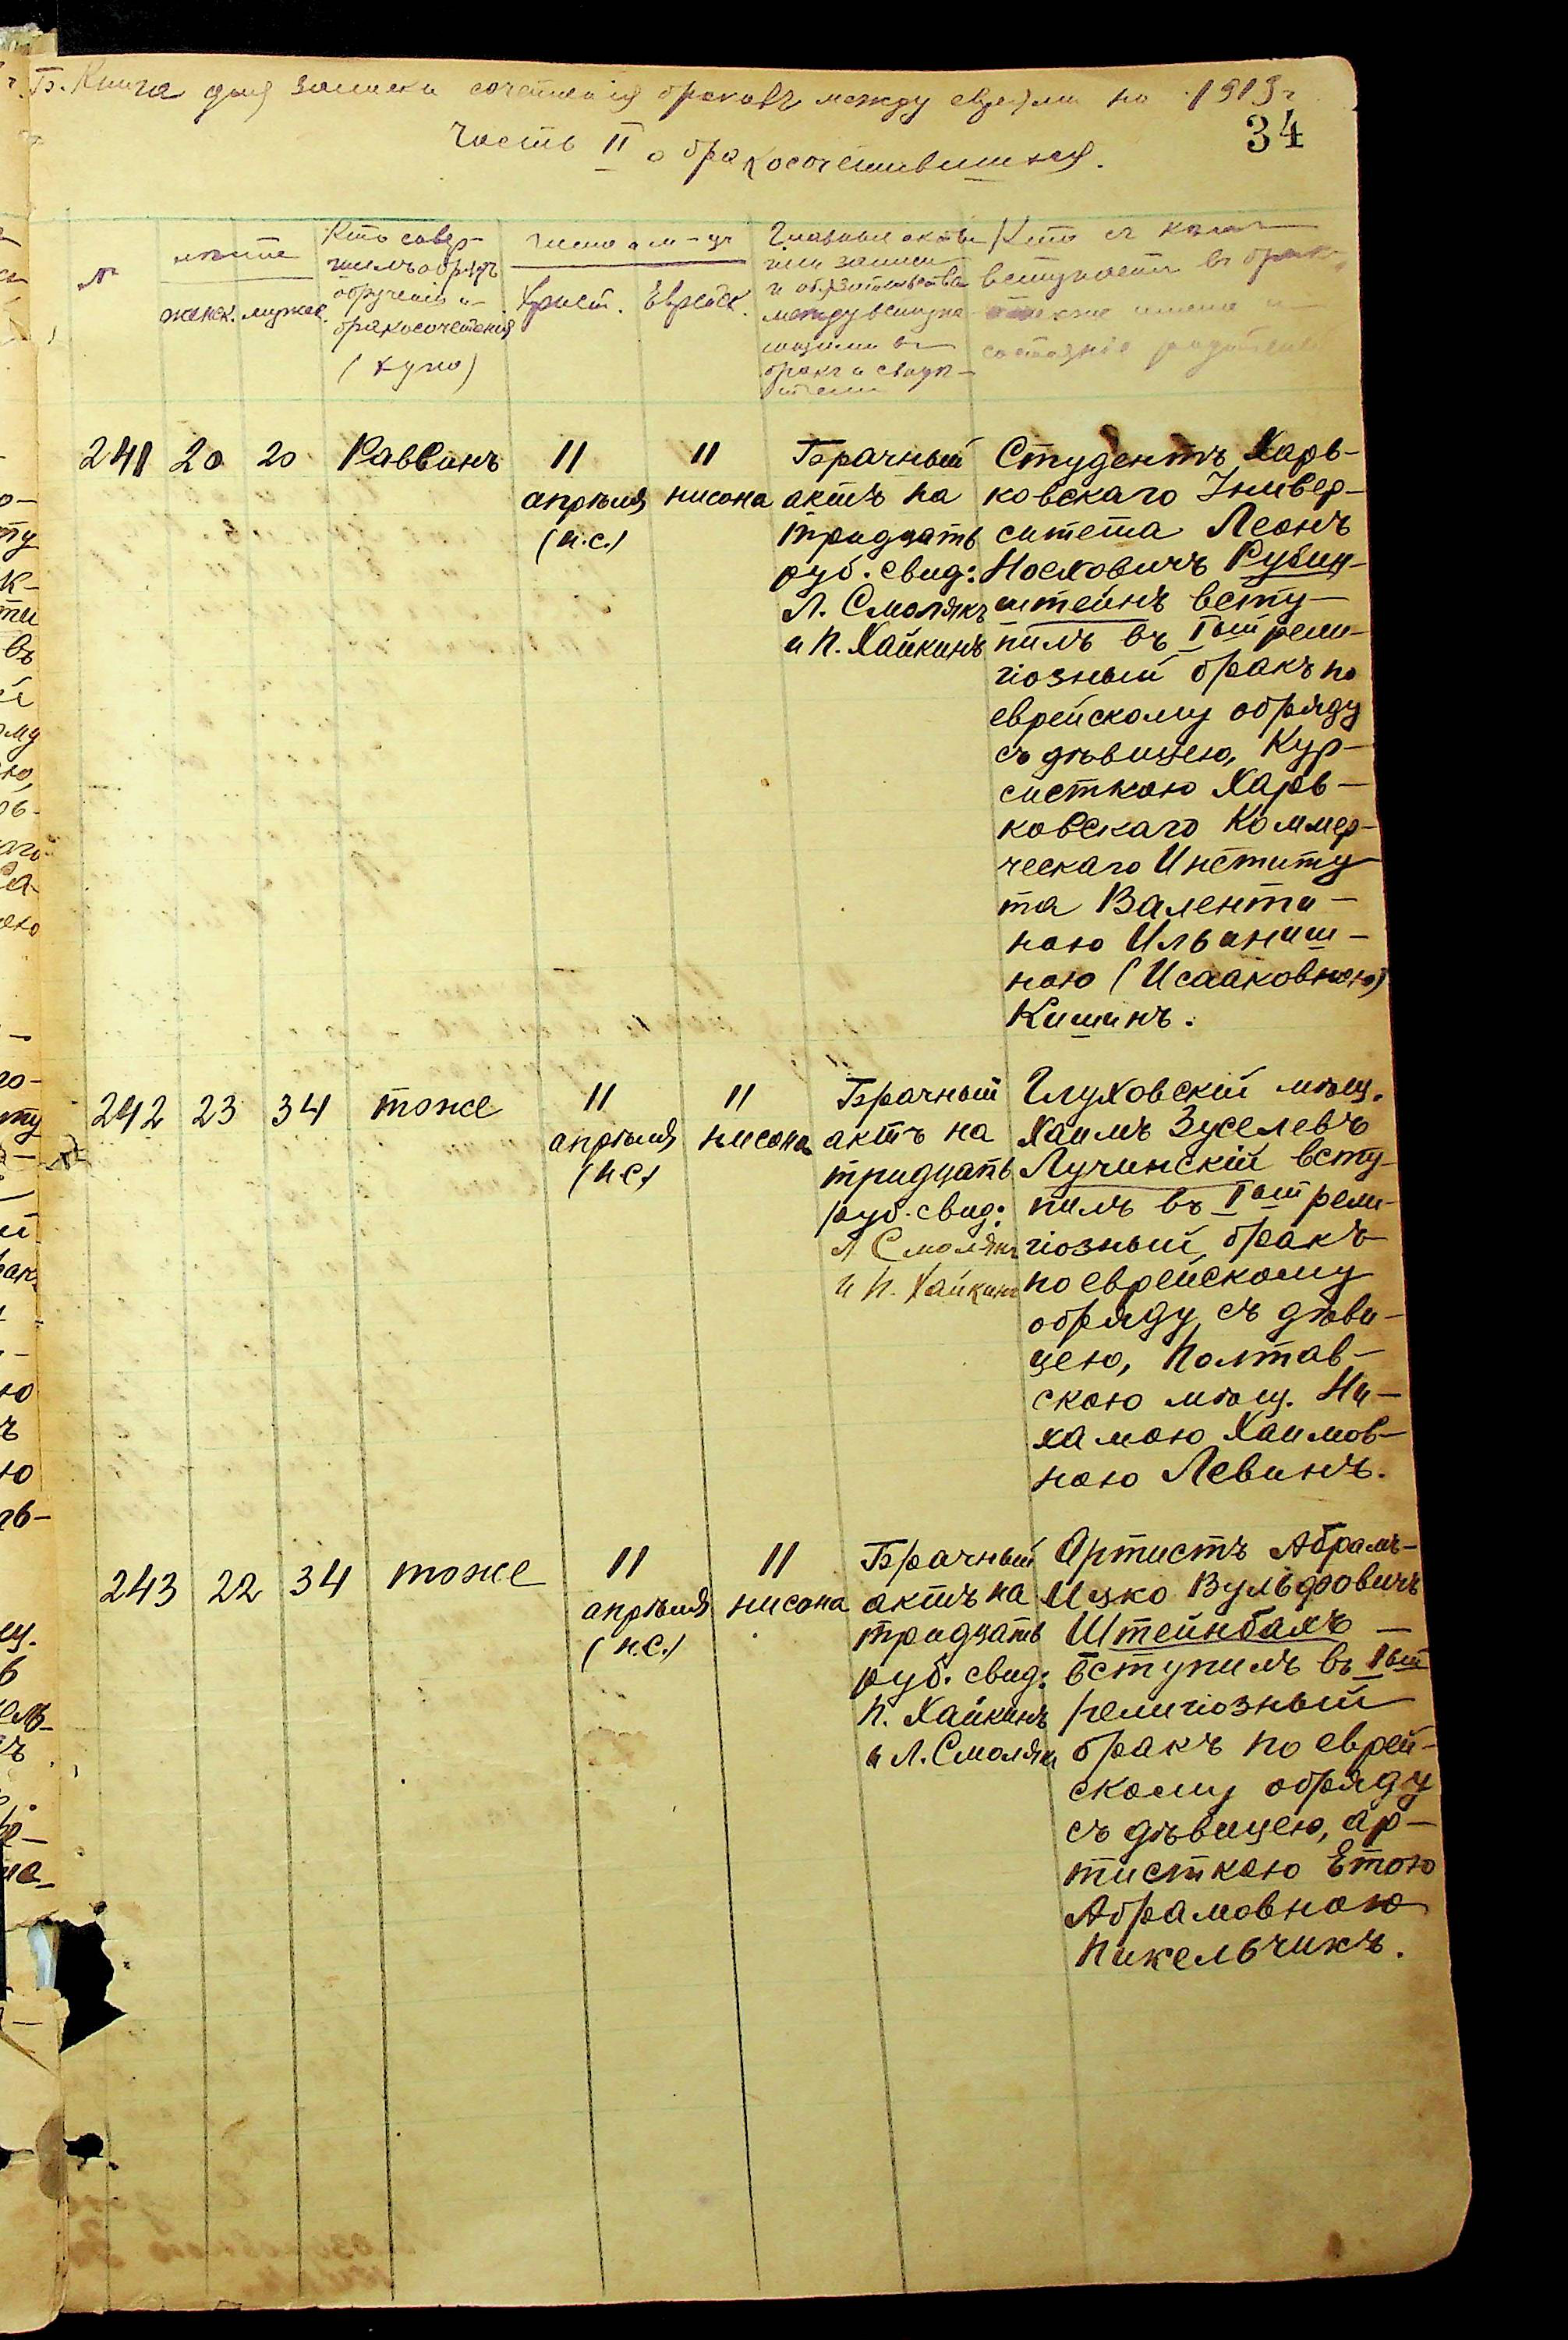 Б. Книга для записки сочетанія браковъ между евреями на 1919 г
34
Часть II о бракосочетавшихся.
№
лѣта
женск. мужск.
Кто совер-
шилъ обрядъ
обрученія и
бракосочетанія
(хупо)
число и м-цъ
Христ. Еврейск.
Главные акты
или записи
и обязательства
между вступаю-
щими въ
бракъ и свидѣ-
тели
Кто съ кѣмъ
вступаетъ въ бракъ,
также имена и
состояніе родителей
241 20 20 Раввинъ
11
апрѣля
(н.с.)
11
нисона
Брачный
актъ на
тридцать
руб. свид:
Л. Смолякъ
и П. Хайкинъ
Студентъ Харь-
ковскаго Универ-
ситета Леонъ
Носховичъ Рубин-
штейнъ всту-
пилъ въ Iый рели-
гіозный бракъ по
еврейскому обряду
съ дѣвицею, Кур-
систкою Харь-
ковскаго Коммер-
ческаго Институ-
та Валенти-
ною Ильинич-
ною (Исааковною)
Кишинъ.
242 23 34 тоже
11
апрѣля
(н.с.)
11
нисона
Брачный
актъ на
тридцать
руб. свид:
Л Смолякъ
и П. Хайкинъ
Глуховскій мѣщ.
Хаимъ Зуселевъ
Лучинскій всту-
пилъ въ Iый рели-
гіозный бракъ
по еврейскому
обряду съ дѣви-
цею, Полтав-
скою мѣщ. Не-
хамою Хаимов-
ною Левинъ.
243 22 34 тоже
11
апрѣля
(н.с.)
11
нисона
Брачный
актъ на
тридцать
руб. свид:
П. Хайкинъ
и Л. Смолякъ
Артистъ Абрамъ-
Ицко Вульфовичъ
Штейнбахъ
вступилъ въ Iый
религіозный
бракъ по еврей-
скому обряду
съ дѣвицею, ар-
тисткою Етою
Абрамовною
Пикельчикъ.